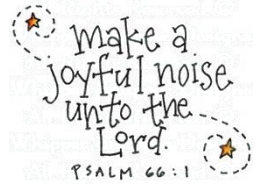 make a
joyful noise
unto the
Lord.
PSALM 66:1